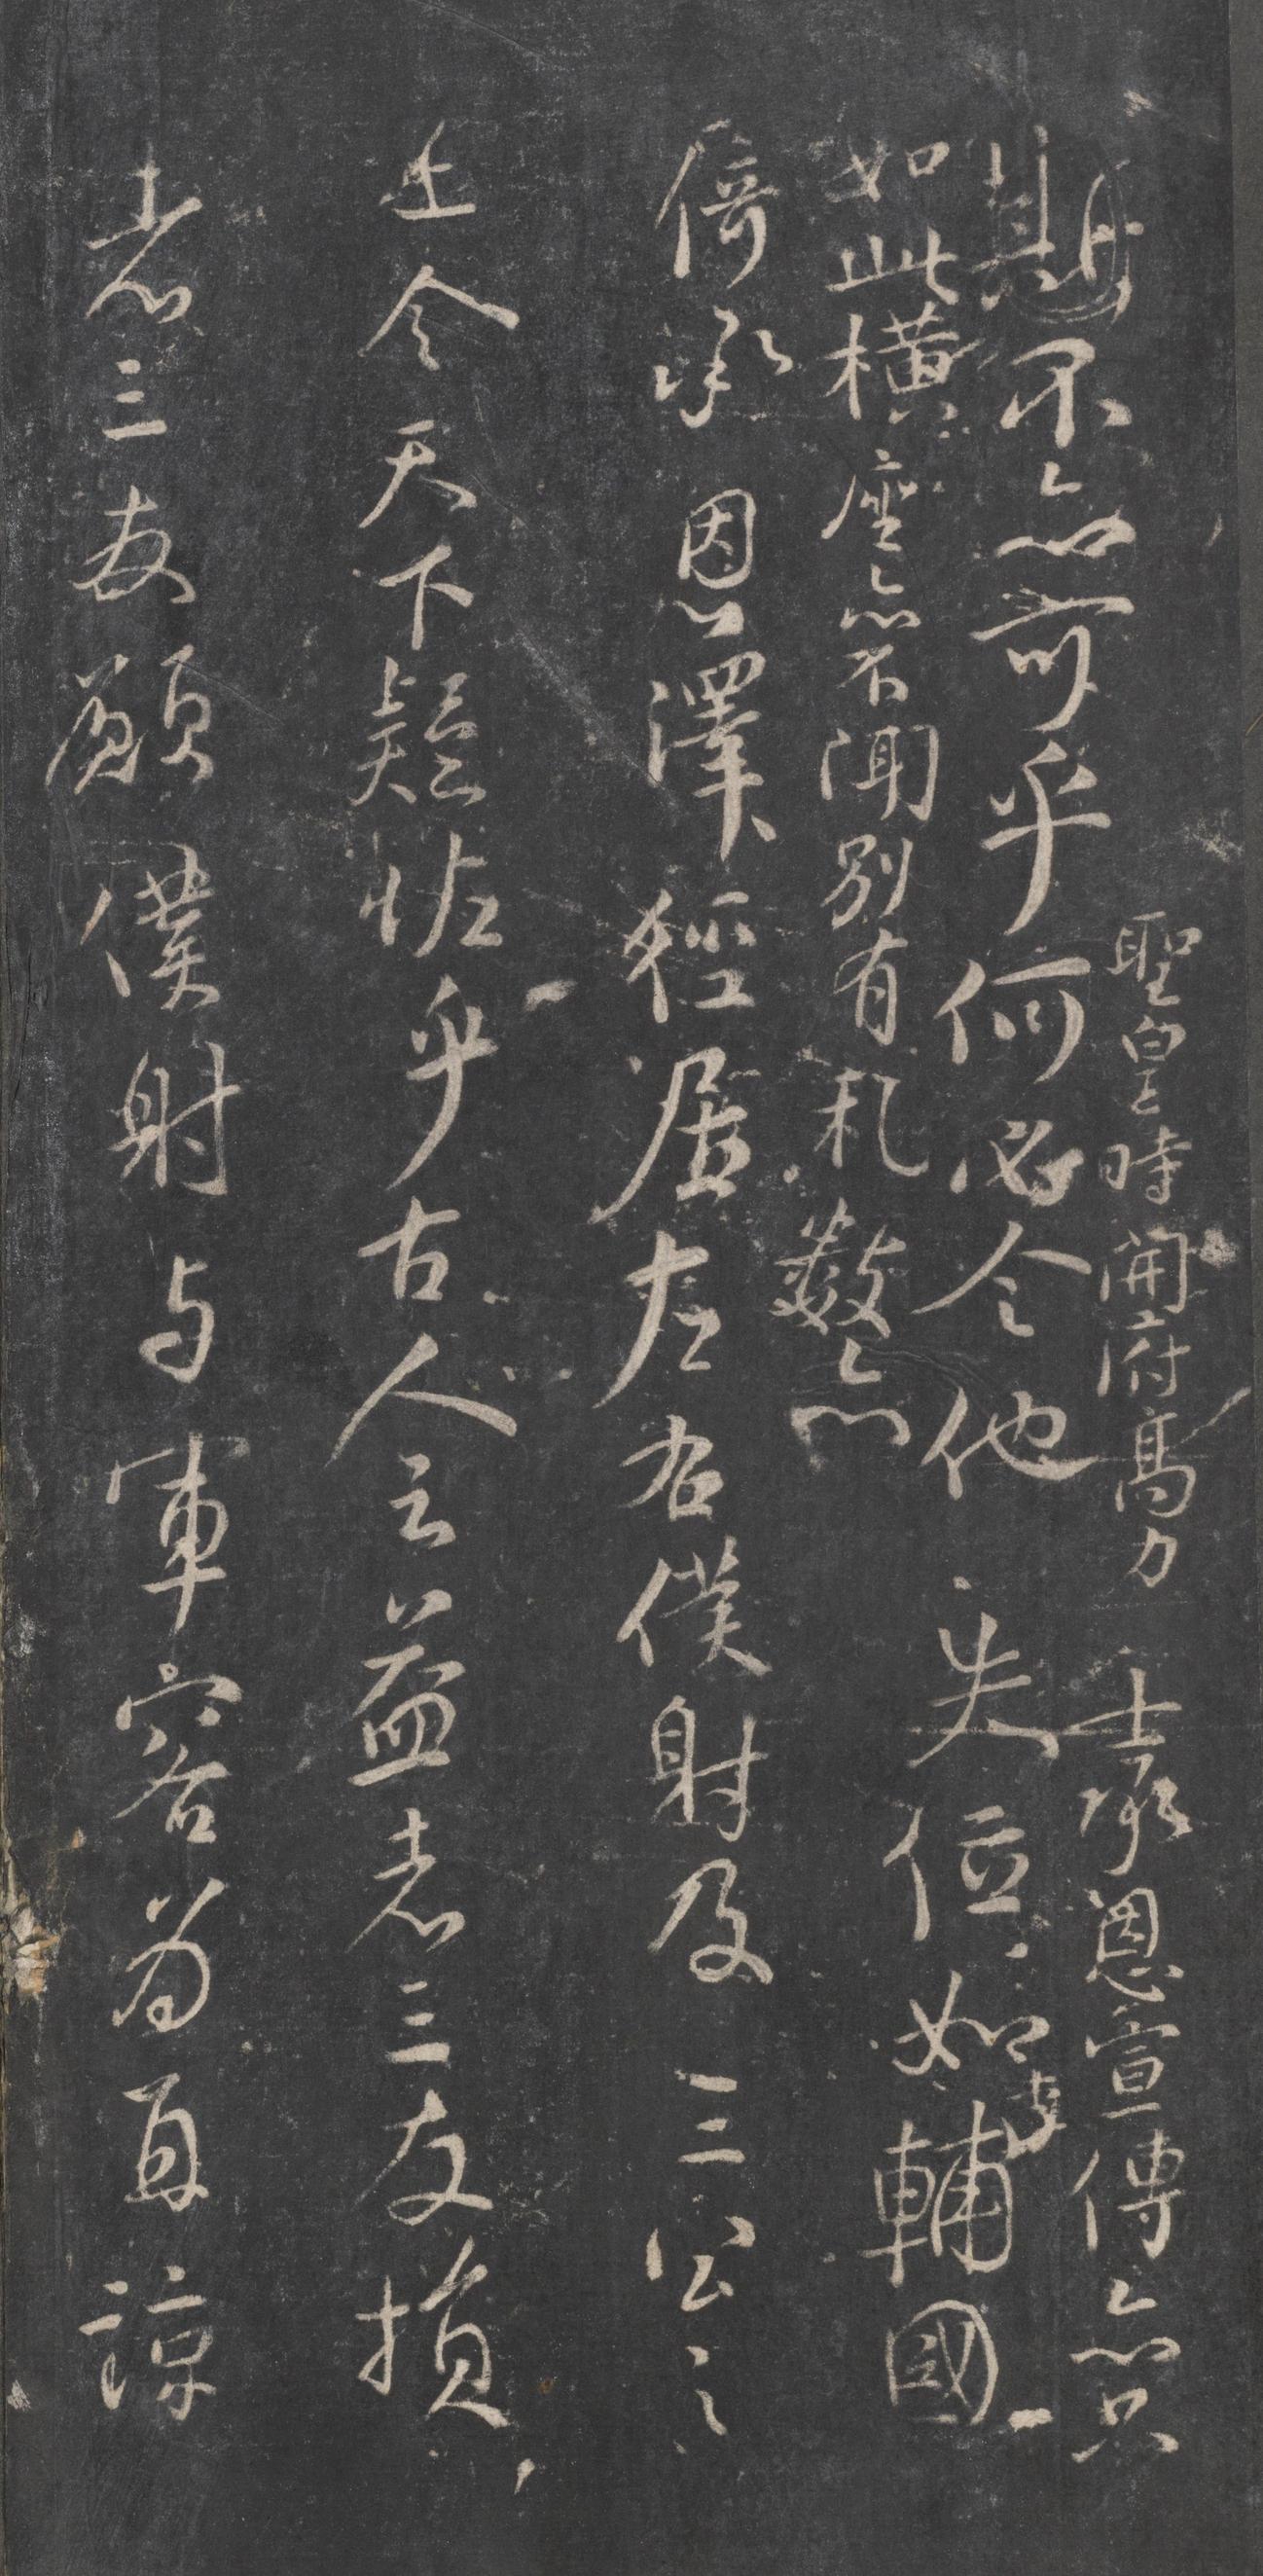 懸不亦可乎
聖皇時開府高力士承恩宣傳亦只
如此横座亦不聞別有礼數亦
何必令他失位如李輔國
倚承恩澤徑居左右僕射及三公之
上令天下疑恠乎古人云益者三友損
者三友願僕射与軍容為直諒